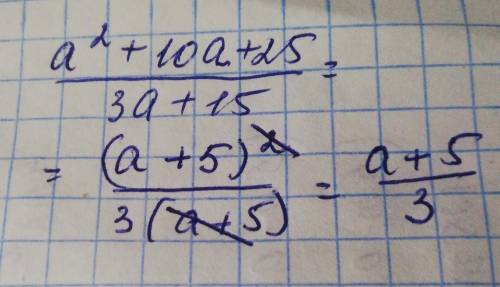 a² + 10a + 25
3a + 15 =
= (a + 5)² / 3(a + 5) = a + 5 / 3